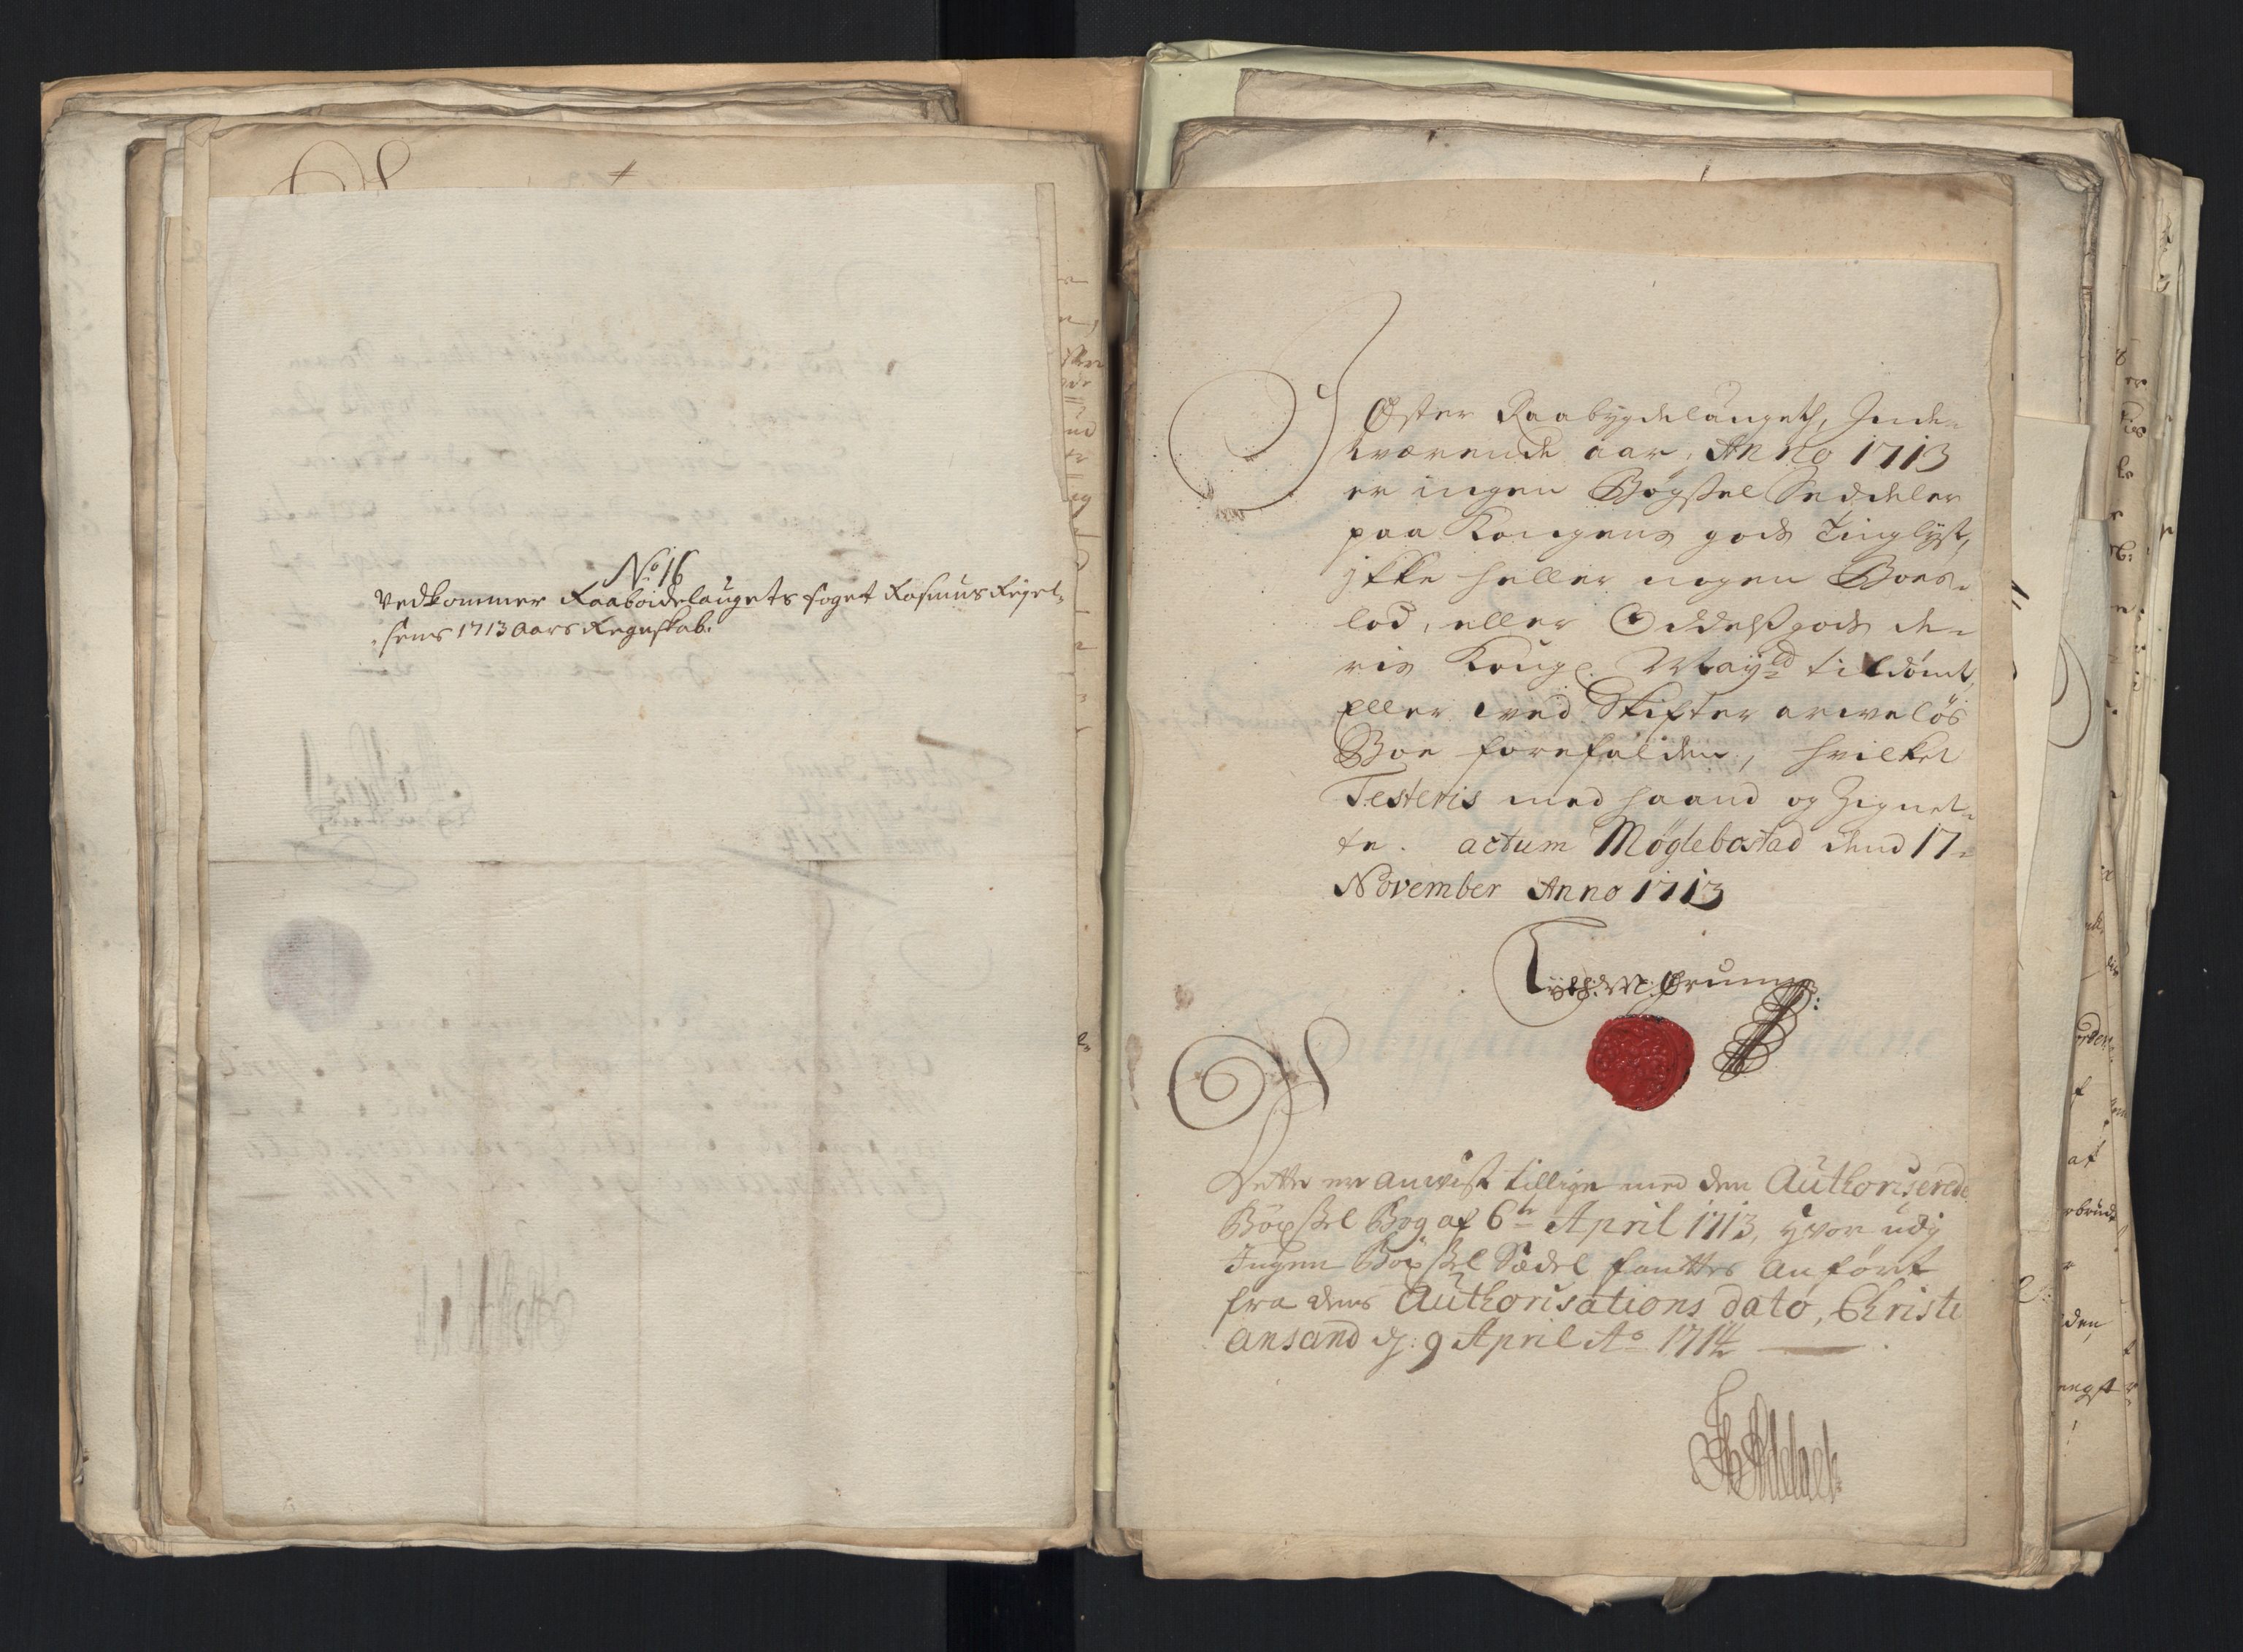 No 16
Vedkommer Raaboidelaugets foget Rasmus Rejel-
sens 1713 Aars Regnskab.
I Øster Raabygdelauget, Inde-
werende aar, Anno 1713
er ingen Bøgssel Seddeler
paa Kongens gods Tinglyst,
ikke heller nogen Boes-
lod, eller Oddelssgods de-
ris Kongl. Mayst tildømt,
eller ved Skifter arwe løs
Boe forefalden, hvilket
Testeris med haand og Zignet-
te. actum Møglebostad dend 17-
November Anno 1713
Dette er anwist tillige med den Authoriserede
Böxsel Bog af 6te April 1713, hvor udj
Ingen Böxsel Sedel fanttes Anført
fra dens Authorisations dato, Christi
ansand d: 9 April Ao 1714